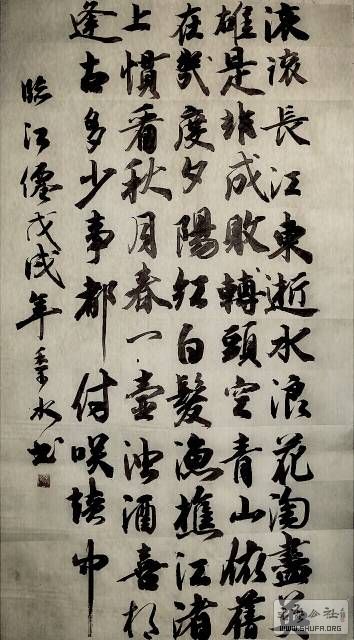 滚滚長江東逝水浪花淘盡英
雄是非成敗轉頭空青山依舊
在幾度夕陽紅白髮漁樵江渚
上慣看秋月春一壺濁酒喜相
逢古多少事都付咲談中
臨江僊戊戌年水書
公社
WWW.SHUFA.ORG